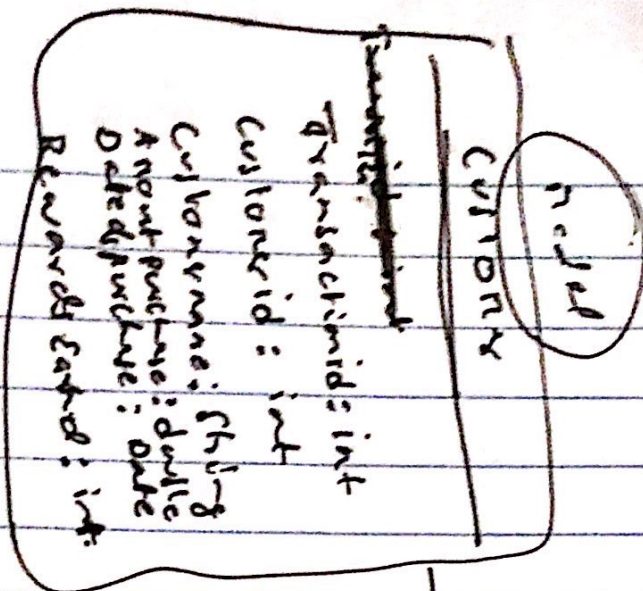 model
Customer
Transactionid: int
Customerid: int
Customername: String
Amountpurchase: double
Dateofpurchase: Date
Rewards Earned: int